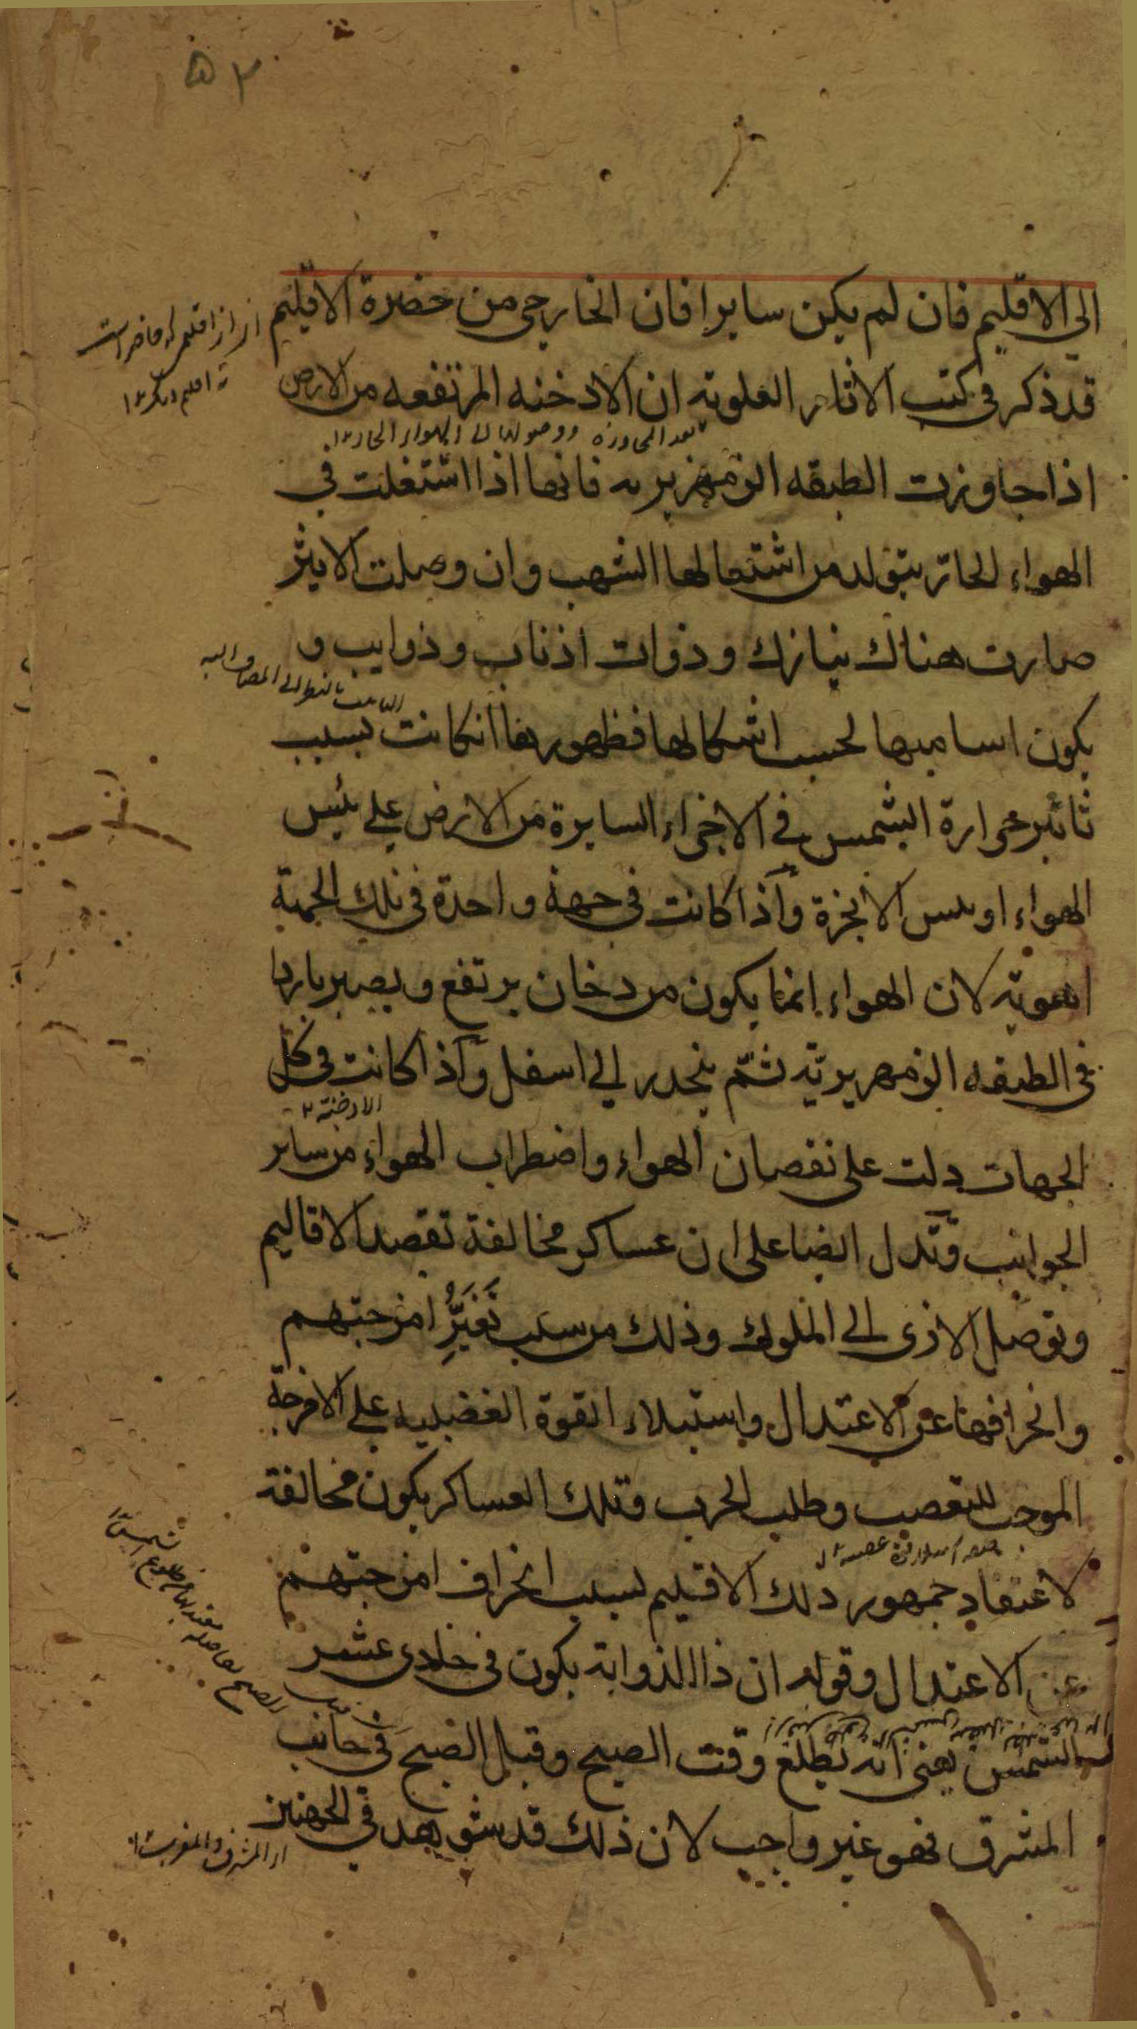 ۵۳
الى الاقليم فان لم يكن سايرا فان الخارجى من حضرة الاقليم
قد ذكر فى كتب الاثار العلويه ان الادخنه المرتفعه من الارض
بعد المجاوزه ووصولها الى الهواء الحار ١٢
اذا جاوزت الطبقه الزمهريريه فانها اذا اشتغلت فى
الهواء الحار يتولد من اشتعالها الشهب وان وصلت الاثير
صارت هناك نيازك وذوات اذناب وذوايب و
يكون اساميها لحسب اشكالها فظهورها انكانت بسبب
تاثير حرارة الشمس فى الاجزاء السايرة من الارض على يبس
الهواء او يبس الابخرة وآذا كانت فى جهة واحدة فى تلك الجهة
اهويه لان الهواء انما يكون من دخان يرتفع ويصير باردا
فى الطبقه الزمهريريّه ثمّ ينحدر الى اسفل وآذا كانت فى كل
الادخنة ١٢
الجهات دلت على نقصان الهواء واضطراب الهواء من ساير
الجوانب وتدل ايضا على ان عساكر مخالفة تقصد الاقاليم
وتوصل الاذى الى الملوك وذلك من سبب تَغَيُّرِ امزجتهم
وانحرافها عن الاعتدال واستيلاء القوة الغضبيه على الامزجة
الموجب للتعصب وطلب الحرب وتلك العساكر يكون مخالفة
لاعتقاد جمهور ذلك الاقليم لسبب انحراف امزجتهم
عن الاعتدال وقوله ان ذا الذوابة يكون فى حادى عشر
الشمس يعنى انه يطلع وقت الصبح وقبل الصبح فى جانب
المشرق فهو غير واجب لان ذلك قد شوهد فى الجهتين
اى المشرق والمغرب ١٢